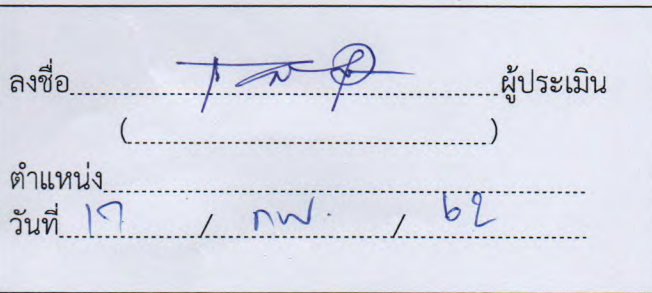 ลงชื่อ ผู้ประเมิน
( )
ตำแหน่ง
วันที่ 17 / กพ. / 62